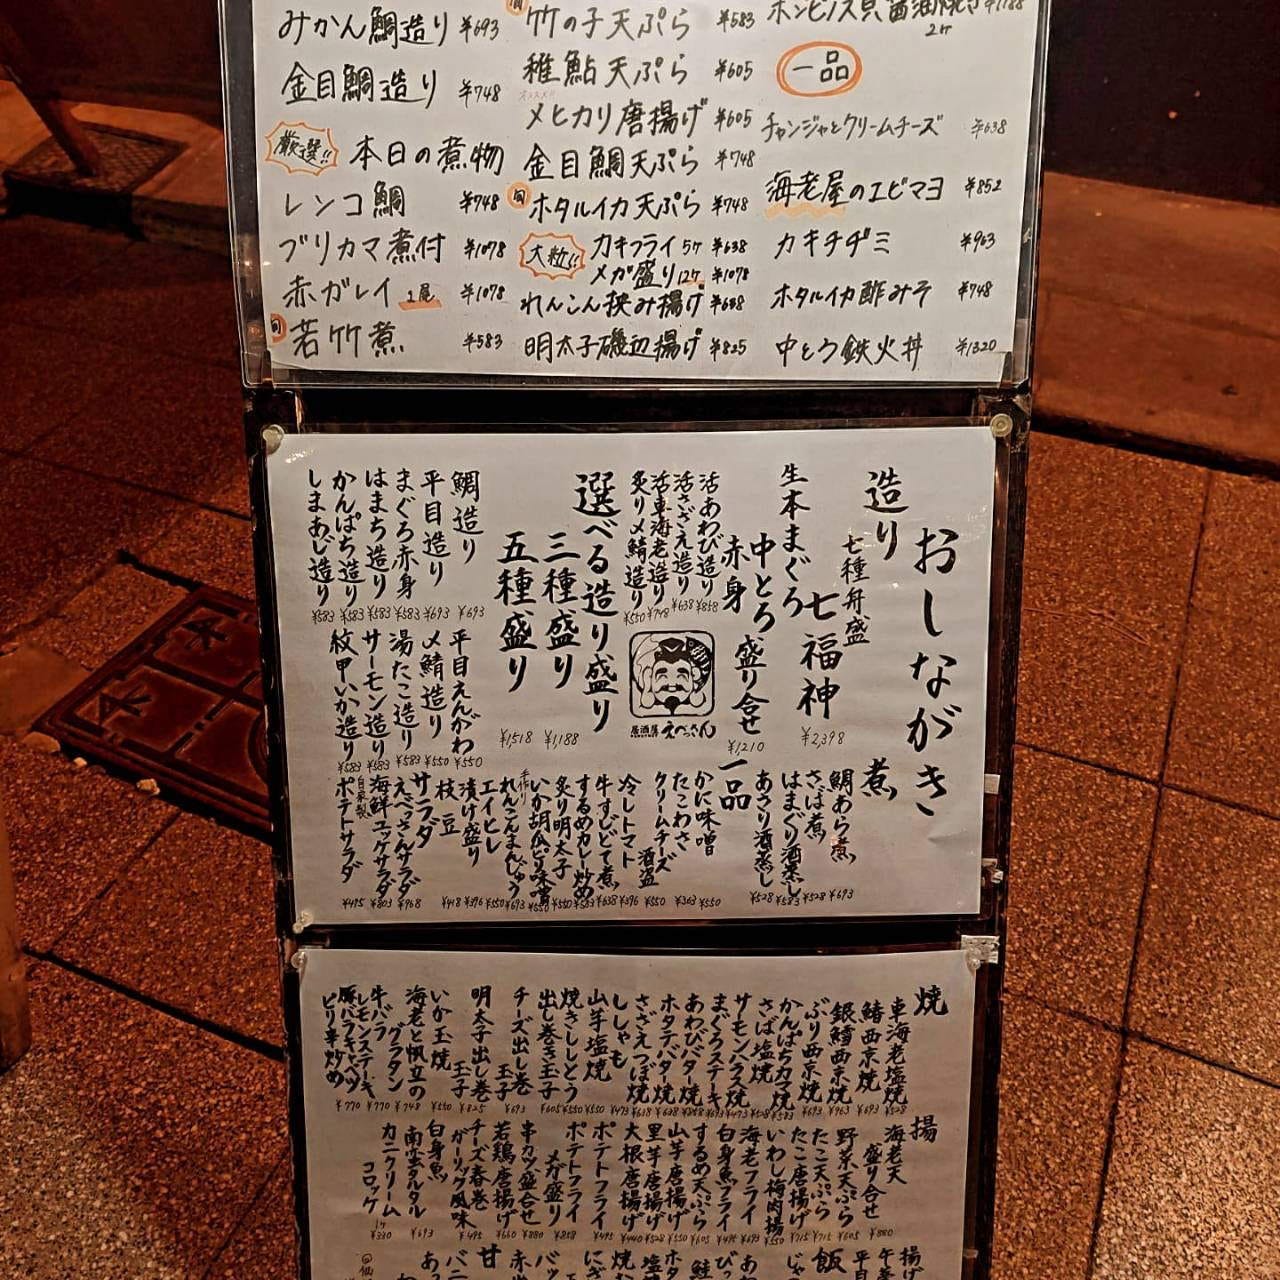 みかん鯛造り ¥693
金目鯛造り ¥748
厳選!! 本日の煮物
レンコ鯛 ¥748
ブリカマ煮付 ¥1078
赤ガレイ 2尾 ¥1078
旬 若竹煮 ¥583
旬 竹の子天ぷら ¥583
稚鮎天ぷら ¥605
オススメ!!
メヒカリ唐揚げ ¥605
金目鯛天ぷら ¥748
旬 ホタルイカ天ぷら ¥748
大粒!! カキフライ 5ケ ¥638
メガ盛り 12ケ ¥1078
れんこん挟み揚げ ¥638
明太子磯辺揚げ ¥825
ホンビノス貝醤油焼き ¥1188
2ケ
一品
チャンジャとクリームチーズ ¥638
海老屋のエビマヨ ¥852
カキチヂミ ¥963
ホタルイカ酢みそ ¥748
中とろ鉄火丼 ¥1320
おしながき
造り
七種舟盛 七福神 ¥2,398
生本まぐろ
中とろ
赤身 盛り合せ ¥1,210
活あわび造り ¥858
活さざえ造り ¥638
活車海老造り ¥748
炙り〆鯖造り ¥550
居酒屋 えべっさん
選べる造り盛り
三種盛り ¥1,188
五種盛り ¥1,518
鯛造り ¥693
平目造り ¥693
まぐろ赤身 ¥583
はまち造り ¥583
かんぱち造り ¥583
しまあじ造り ¥583
平目えんがわ ¥550
〆鯖造り ¥550
湯たこ造り ¥583
サーモン造り ¥583
紋甲いか造り ¥583
煮
鯛あら煮 ¥693
さば煮 ¥528
はまぐり酒蒸し ¥583
あさり酒蒸し ¥528
一品
かに味噌 ¥550
たこわさ ¥363
クリームチーズ酒盗 ¥550
冷しトマト ¥396
牛すじどて煮 ¥638
するめカレー炒め ¥583
炙り明太子 ¥550
いか胡瓜ピリ味噌 ¥550
手作り れんこんまんじゅう ¥693
エイヒレ ¥550
漬け盛り ¥396
枝豆 ¥418
サラダ
えべっさんサラダ ¥968
海鮮ユッケサラダ ¥803
自家製 ポテトサラダ ¥495
焼
車海老塩焼 ¥528
鰆西京焼 ¥693
銀鱈西京焼 ¥963
ぶり西京焼 ¥693
かんぱちカマ焼 ¥583
さば塩焼 ¥528
サーモンハラス焼 ¥473
まぐろステーキ ¥693
あわびバター焼 ¥858
ホタテバター焼 ¥638
さざえつぼ焼 ¥638
ししゃも ¥473
山芋塩焼 ¥550
焼きししとう ¥550
出し巻き玉子 ¥605
チーズ出し巻玉子 ¥693
明太子出し巻玉子 ¥825
いか玉焼 ¥550
海老と帆立のグラタン ¥748
牛バラレモンステーキ ¥770
豚バラキャベツピリ辛炒め ¥770
揚
海老天盛り合せ ¥880
野菜天ぷら ¥605
たこ天ぷら ¥715
たこ唐揚げ ¥715
いわし梅肉揚 ¥550
海老フライ ¥693
白身魚フライ ¥495
するめ天ぷら ¥605
山芋唐揚げ ¥550
里芋唐揚げ ¥528
大根唐揚げ ¥440
ポテトフライ ¥495
ポテトフライメガ盛り ¥858
串カツ盛合せ ¥880
若鶏唐揚げ ¥660
チーズ春巻ガーリック風味 ¥495
白身魚南蛮タルタル ¥693
カニクリームコロッケ 1ケ ¥330
揚げ
飯
甘